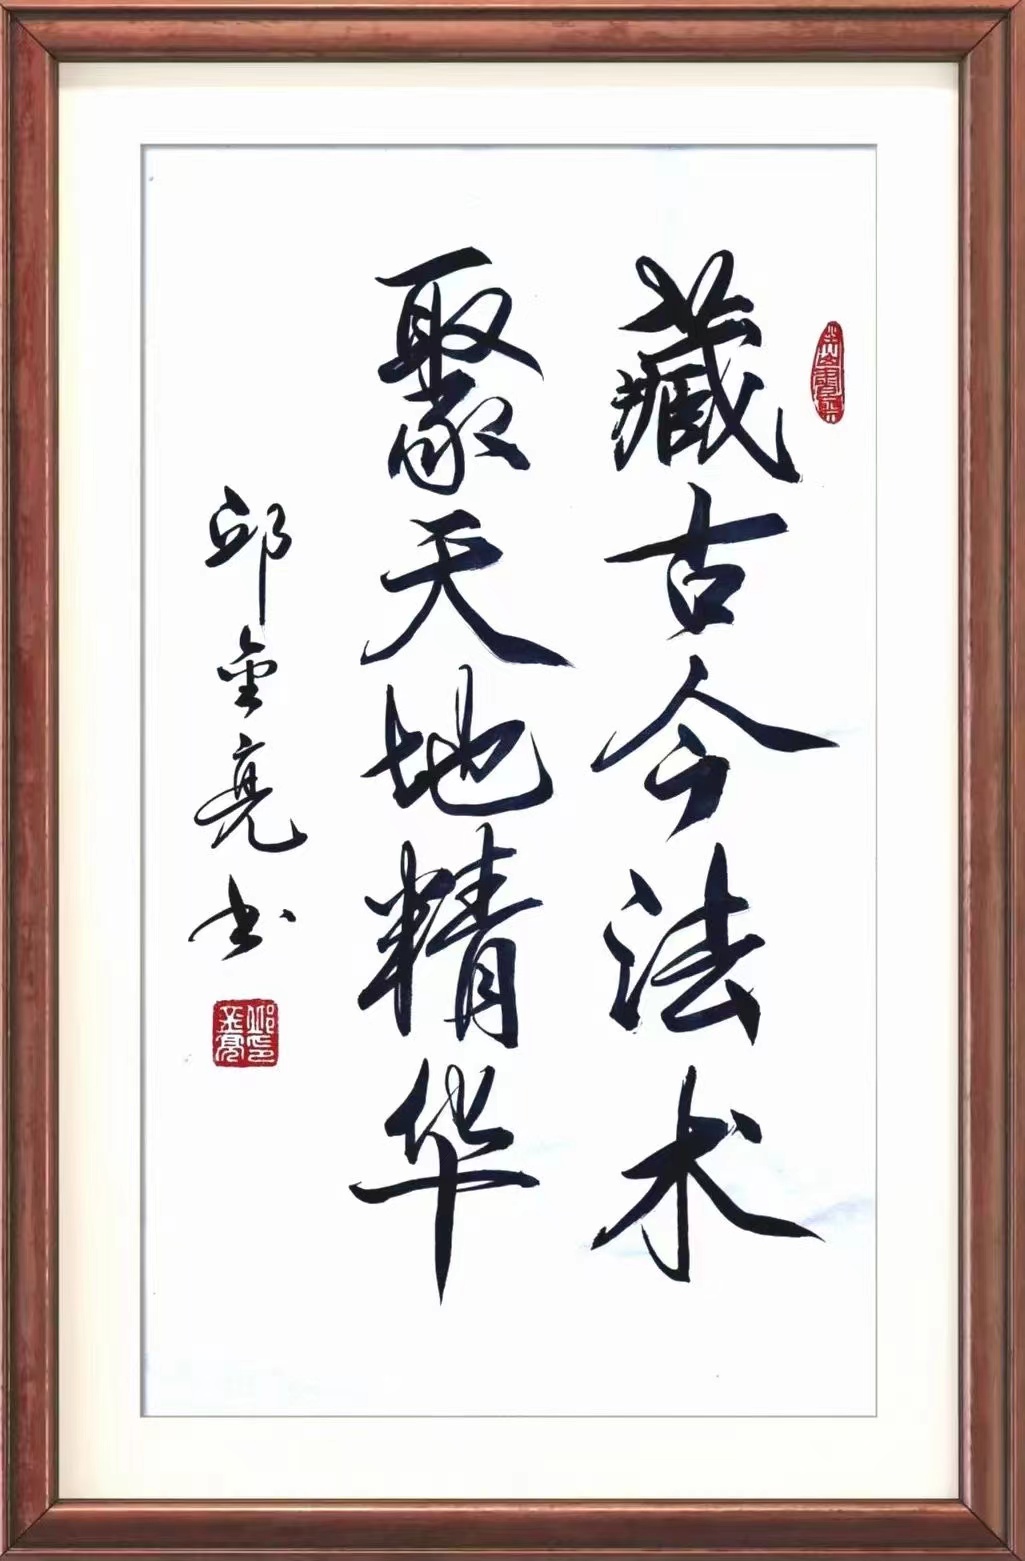 藏古今法术
聚天地精华
邱金亮书